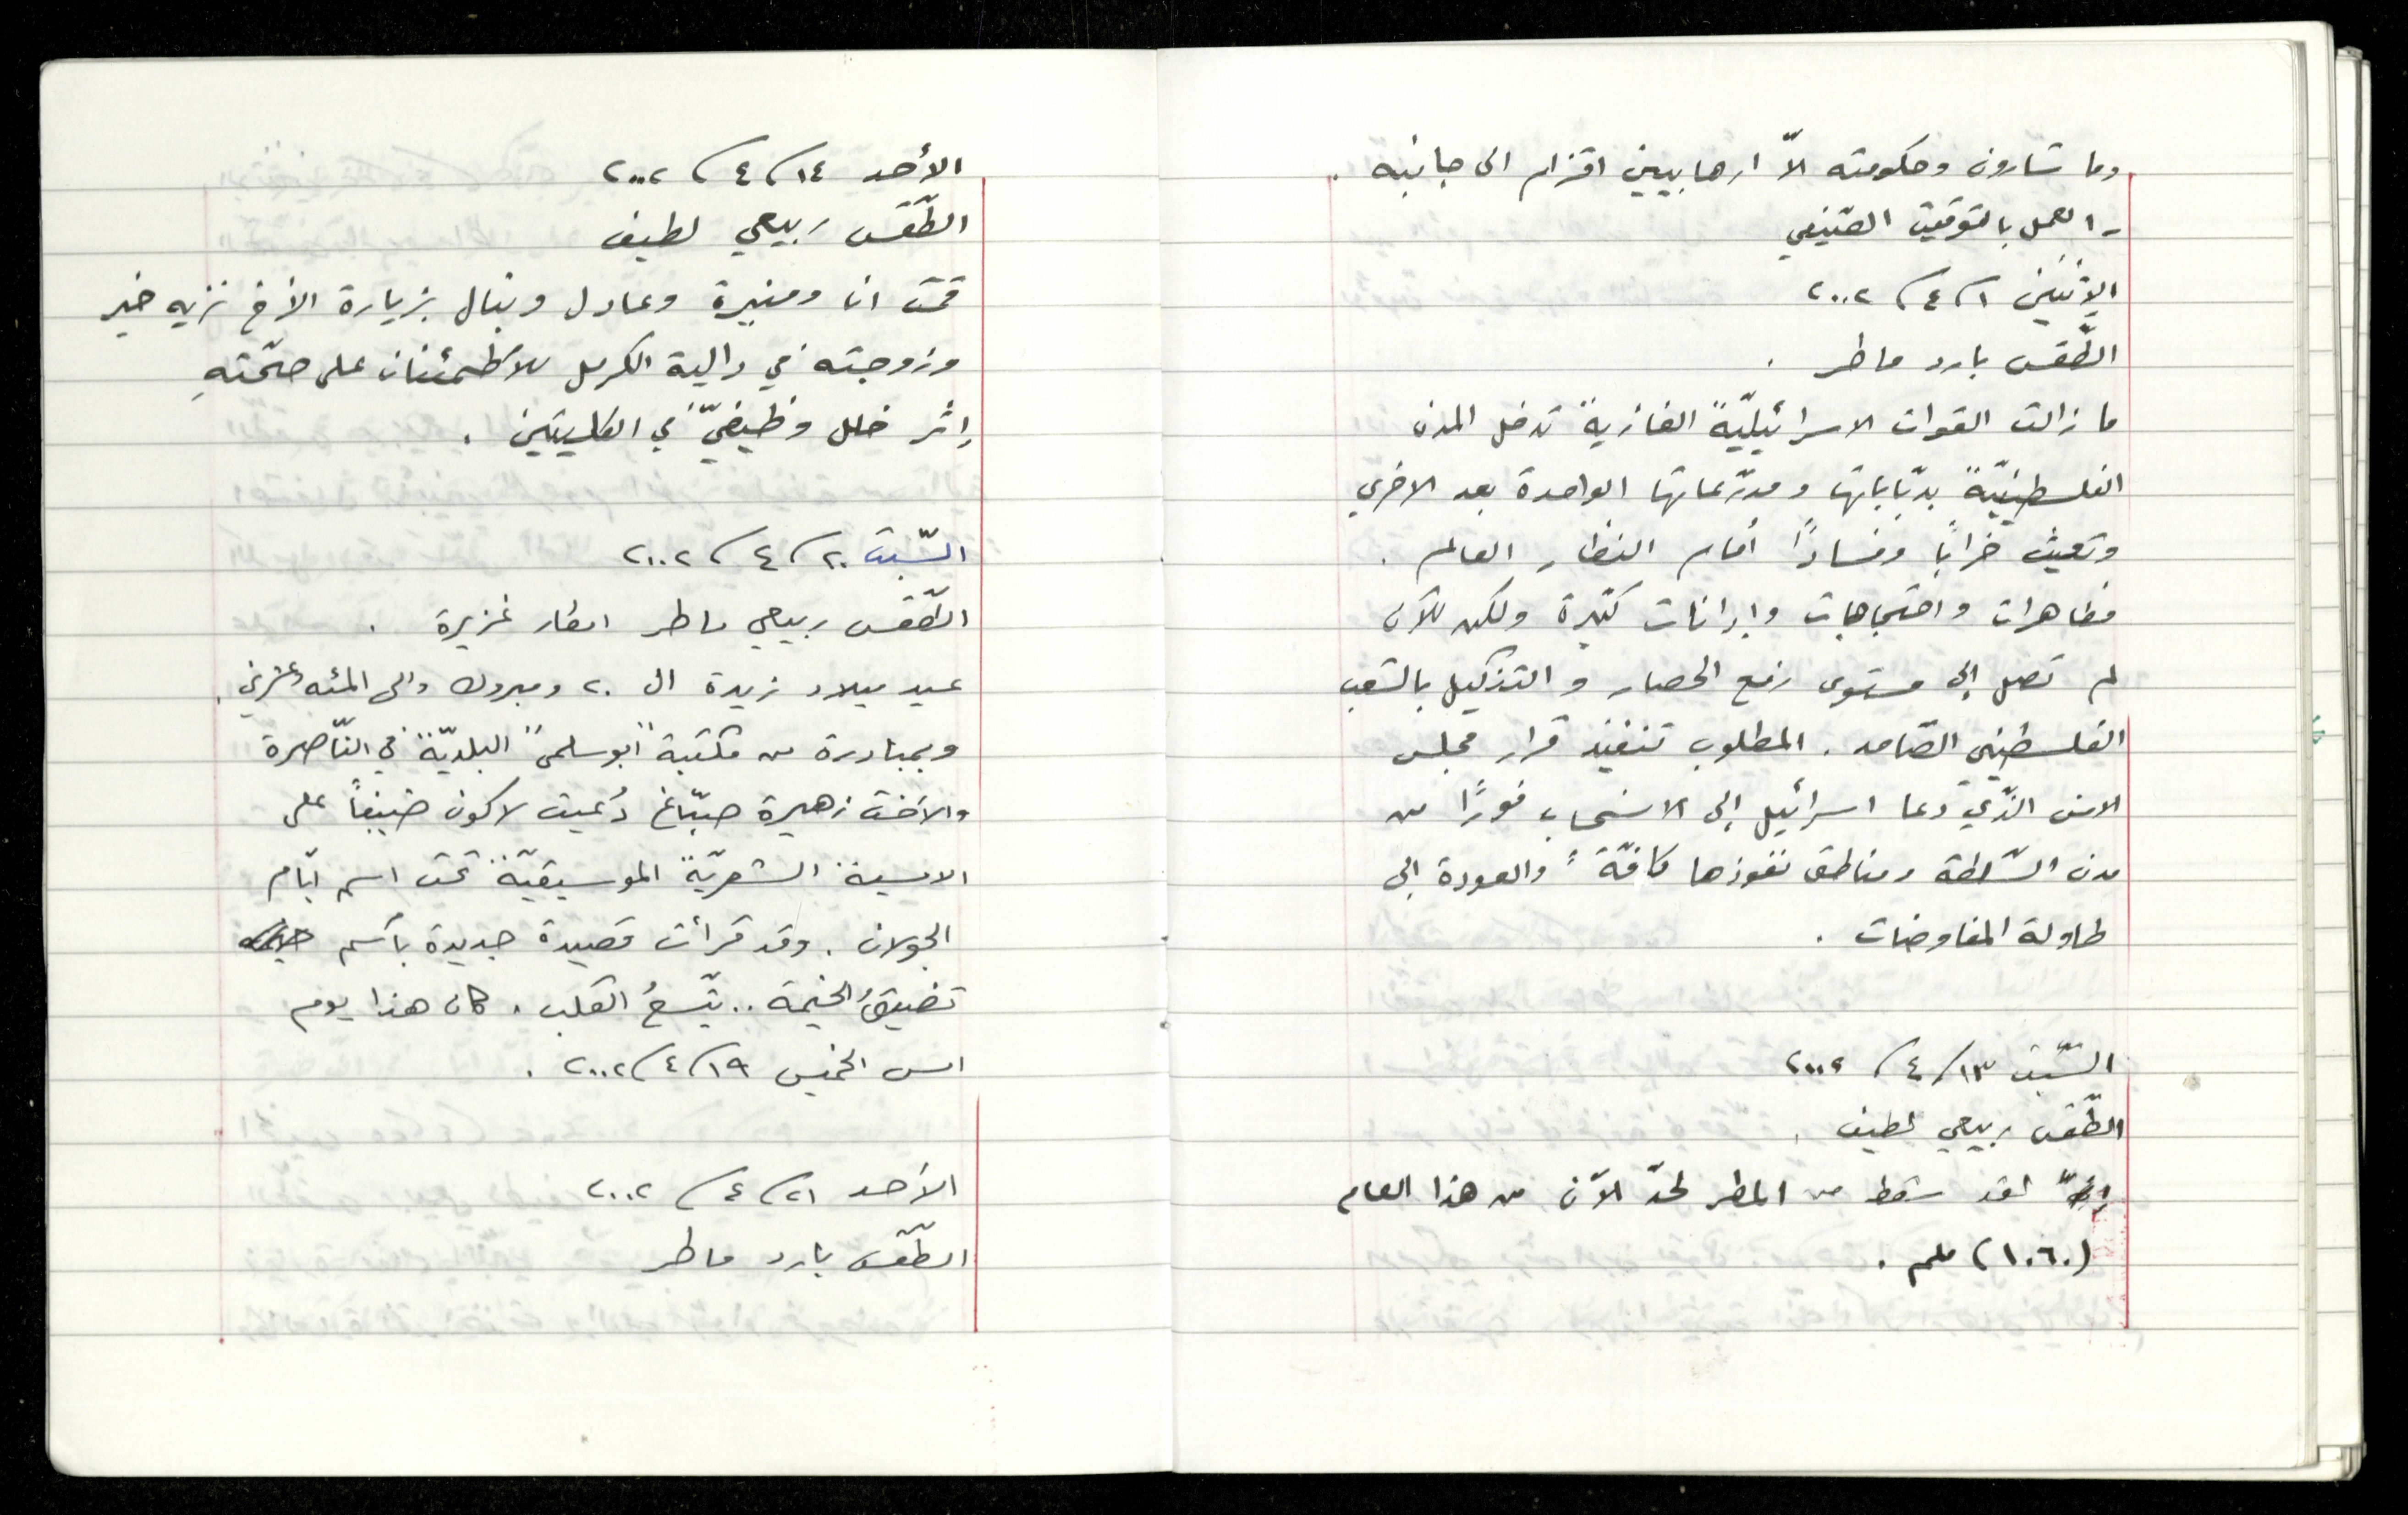 وما شارون وحكومته الاّ ارهابيين اقزام الى جانبه .
- العمل بالتوقيت الصّيفي
الإثنين ١/٤/٢٠٠٢
الطّقس بارد ماطر .
ما زالت القوات الاسرائيليّة الغازية تدخل المدن
الفلسطينيّة بدبّاباتها ومدرّعاتها الواحدة بعد الاخرى
وتعيث خرابًا وفسادًا أمام انظار العالم .
مظاهرات واحتجاجات وإدانات كثيرة ولكن للآن
لم تصل إلى مستوى رفع الحصار والتنكيل بالشعب
الفلسطيني الصّامد . المطلوب تنفيذ قرار مجلس
الامن الذّي دعا اسرائيل إلى الانسحاب فورًا من
مدن السّلطة ومناطق نفوذها كافّةً والعودة الى
طاولة المفاوضات .
السّبت ١٣/٤/٢٠٠٢
الطّقس ربيعي لطيف .
لقد سقط من المطر لحدّ الآن من هذا العام
(١٠٦٠) ملم .
الأحد ١٤/٤/٢٠٠٢
الطّقس ربيعي لطيف
قمت انا ومنيرة وعادل ونبال بزيارة الأخ نزيه خير
وزوجته في دالية الكرمل للاطمئنان على صحّتهِ
إثر خلل وظيفيّ في الكليتين .
السّبت ٢٠/٤/٢٠٠٢
الطّقس ربيعي ماطر امطار غزيرة .
عيد ميلاد زيدة ال ٢٠ ومبروك والى المئه وعشرين .
وبمبادرة من مكتبة "ابو سلمى" البلديّة في النّاصرة
والأخت زهيرة صبّاغ دُعيت لاكون ضيفاً على
الامسية الشعريّة الموسيقيّة تحت اسم ايّام
الجولان . وقد قرأت قصيدة جديدة باسم
تضيقُ الخيمة .. يتّسعُ القلب . كان هذا يوم
امس الخميس ١٩/٤/٢٠٠٢ .
الأحد ٢١/٤/٢٠٠٢
الطّقس بارد ماطر